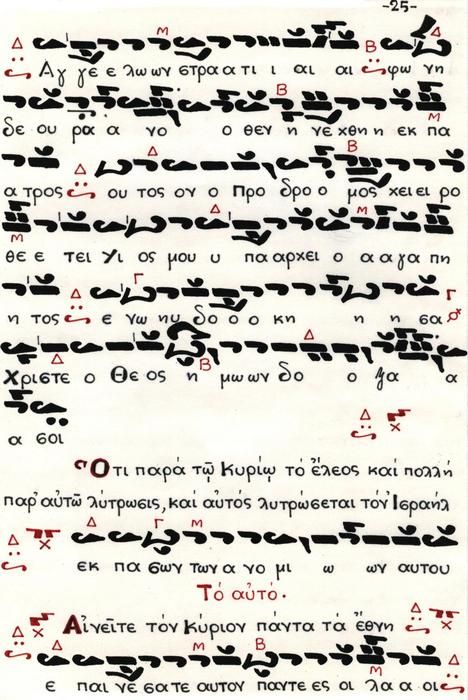 -25-
Αγ γε ε λω ων στρα α τι ι αι αι φω νη
δε ου ρα α νο ο θεν η νε χθη η εκ πα
α τρος ου τος ον ο Προ δρο ο μος χει ει ρο
θε ε τει Υι ος μου υ πα αρχει ο α α γα πη
η τος ε γω ηυ δο ο ο κη η η σα
Χριστε ο Θε ος η μω ων δο ο ξα α
α σοι
Ὅτι παρά τῷ Κυρίῳ τό ἔλεος καί πολλή
παρ' αὐτῶ λύτρωσις, καί αὐτός λυτρώσεται τόν Ἰσραήλ
εκ πα σων των α νο μι ω ων αυτου
Τό αὐτό.
Αἰνεῖτε τόν Κύριον πάντα τά ἔθνη
ε παι νε σατε αυτον παντε ες οι λα α οι